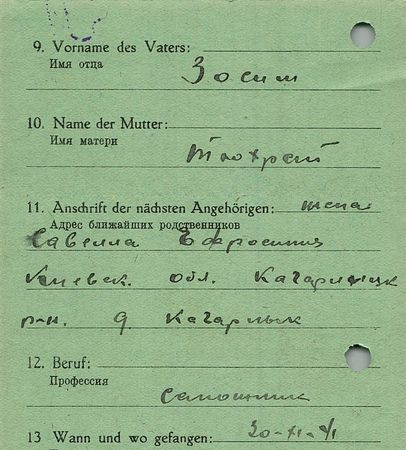 9. Vorname des Vaters:
Имя отца
Зосим
10. Name der Mutter:
Имя матери
11. Anschrift der nächsten Angehörigen: жена
Адрес ближайших родственников
Савелла Ефросиния
Киевск. обл. Кагарлицк
р-н. д Кагарлык
12. Beruf:
Профессия
Сапошник
13 Wann und wo gefangen: 30-XI-41